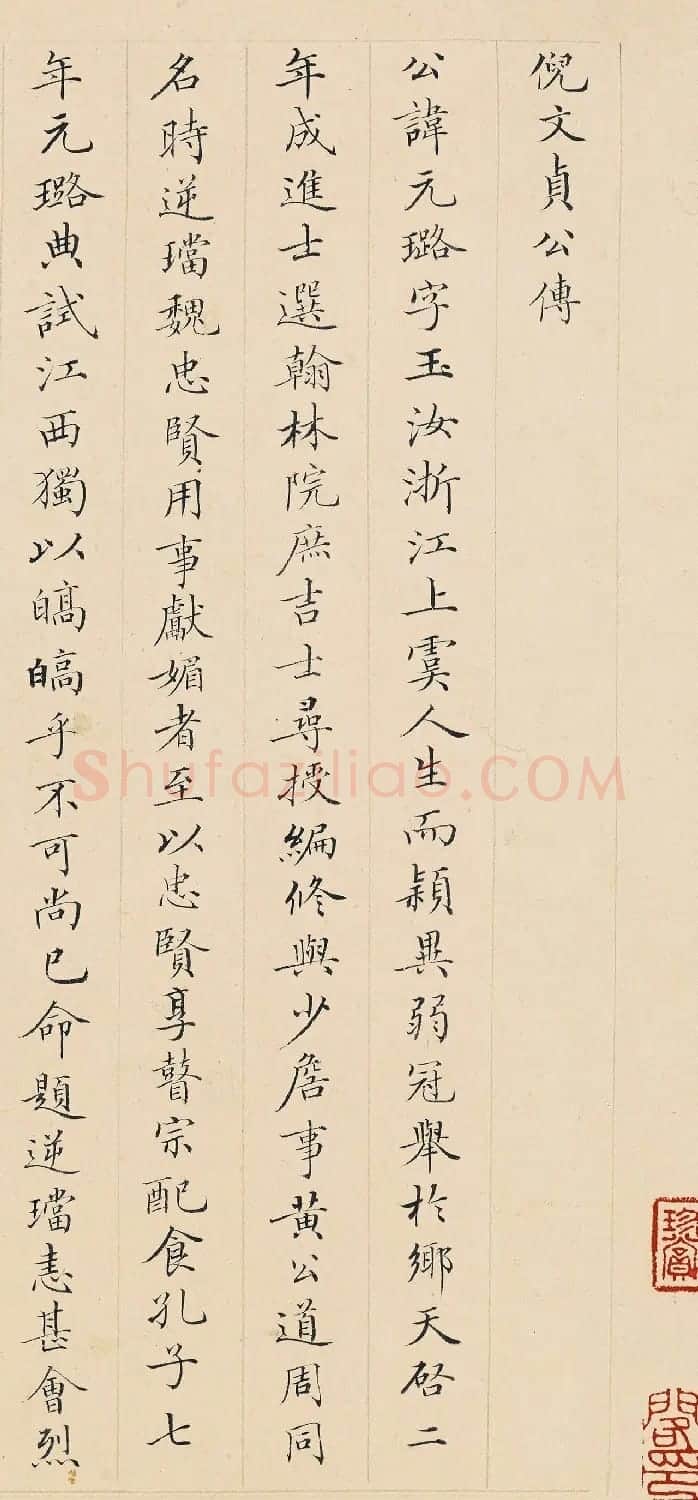 倪文貞公傳
公諱元璐字玉汝浙江上虞人生而穎異弱冠舉於鄉天啓二
年成進士選翰林院庶吉士尋授編修與少詹事黃公道周同
名時逆璫魏忠賢用事獻媚者至以忠賢享瞽宗配食孔子七
年元璐典試江西獨以皜皜乎不可尚已命題逆璫恚甚會烈
Shufaziliao.COM